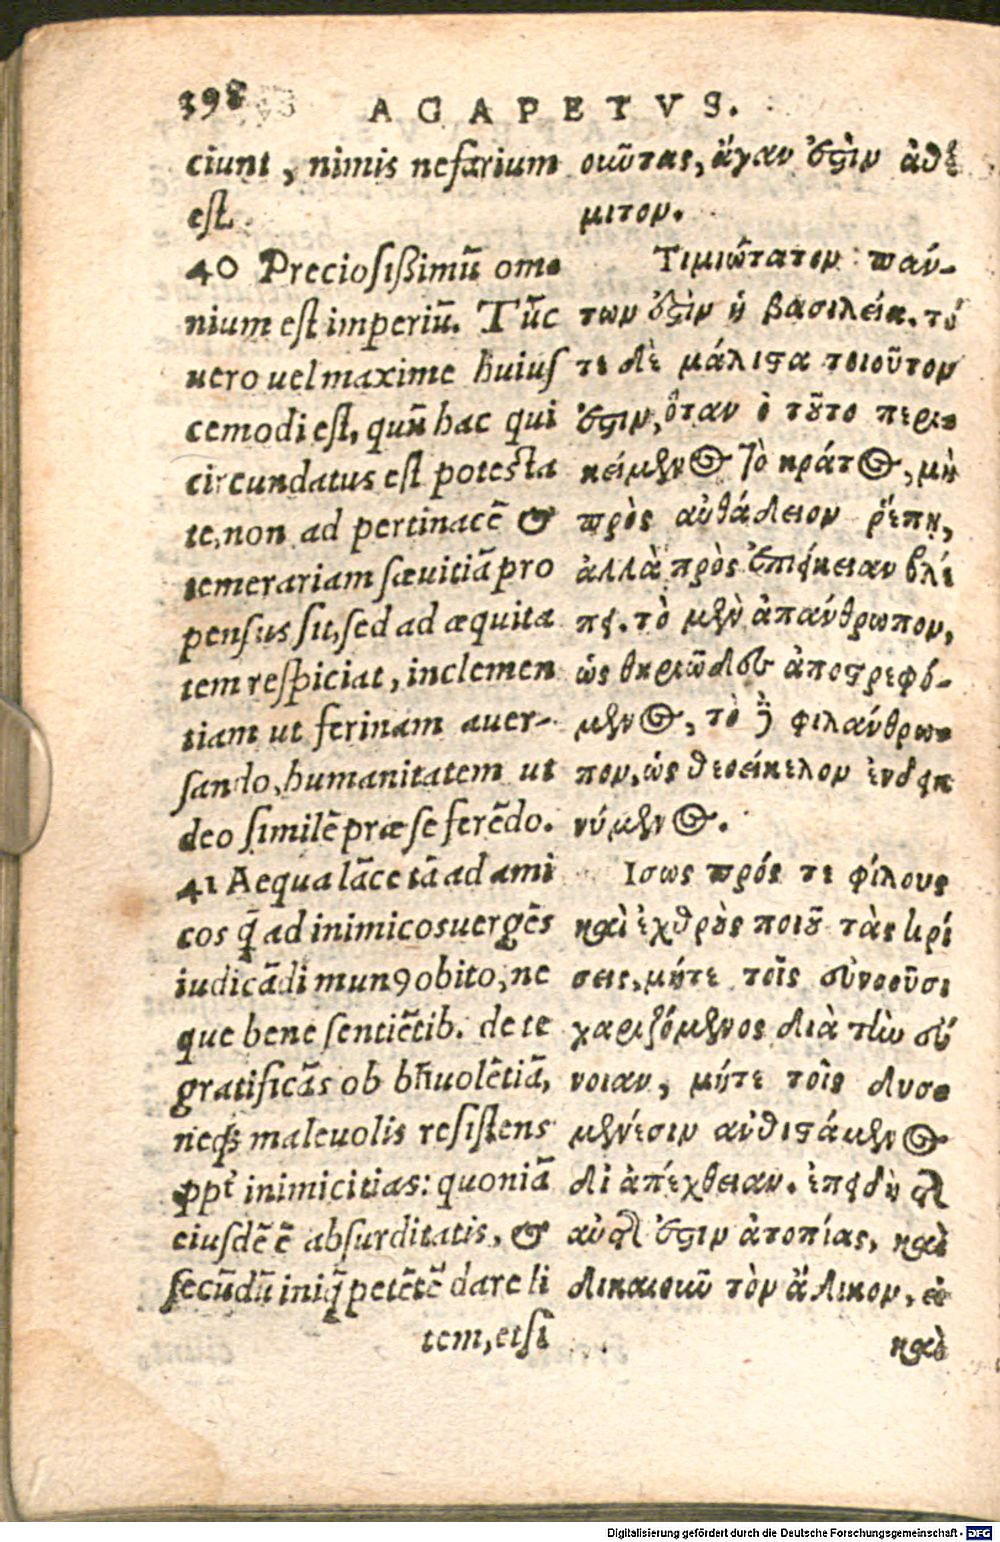 398
AGAPETVS.
ciunt, nimis nefarium
est.
40 Preciosißimũ om-
nium est imperiũ. Tũc
uero uel maxime huius
cemodi est, quũ hac qui
circundatus est potesta
te, non ad pertinacẽ &
temerariam sæuitiã pro
pensus sit, sed ad æquita
tem respiciat, inclemen
tiam ut ferinam auer-
sando, humanitatem ut
deo similẽ præ se ferẽdo.
41 Aequa lãce tã ad ami
cos q̃ ad inimicos uergẽs
iudicãdi munꝯ obito, ne
que bene sentiẽtib. de te
gratificãs ob bñuolẽtiã,
neqꝫ maleuolis resistens
ꝓpt̃ inimicitias: quoniã
eiusdẽ ẽ absurditatis, &
secũdũ iniq̃ petẽtẽ dare li
tem, etsi
οιῶτας, ἄγαν ἐστὶν ἀθέ
μιτον.
Τιμιώτατον πάν-
των ἐστὶν ἡ βασιλεία. τό
τε δὲ μάλιστα τοιοῦτον
ἐστιν, ὅταν ὁ τοῦτο περι-
κείμενος τὸ κράτος, μὴ
πρὸς αὐθάδειον ῥέπῃ,
ἀλλὰ πρὸς ἐπιείκειαν βλέ
πει. τὸ μὲν ἀπάνθρωπον,
ὡς θηριῶδες ἀποστρεφό-
μενος, τὸ δὲ φιλάνθρω-
πον, ὡς θεοείκελον ἐνδεικ
νύμενος.
Ισως πρός τε φίλους
καὶ ἐχθροὺς ποιοῦ τὰς κρί
σεις, μήτε τοῖς εὐνοοῦσι
χαριζόμενος διὰ τὴν εὔ
νοιαν, μήτε τοῖς δυσ-
μενέσιν ἀνθιστάμενος
δι ἀπέχθειαν. ἐπειδὴ τῆς
αὐτῆς ἐστιν ἀτοπίας, καὶ
δικαιοῦν τὸν ἄδικον, εἰ
καὶ
Digitalisierung gefördert durch die Deutsche Forschungsgemeinschaft - DFG